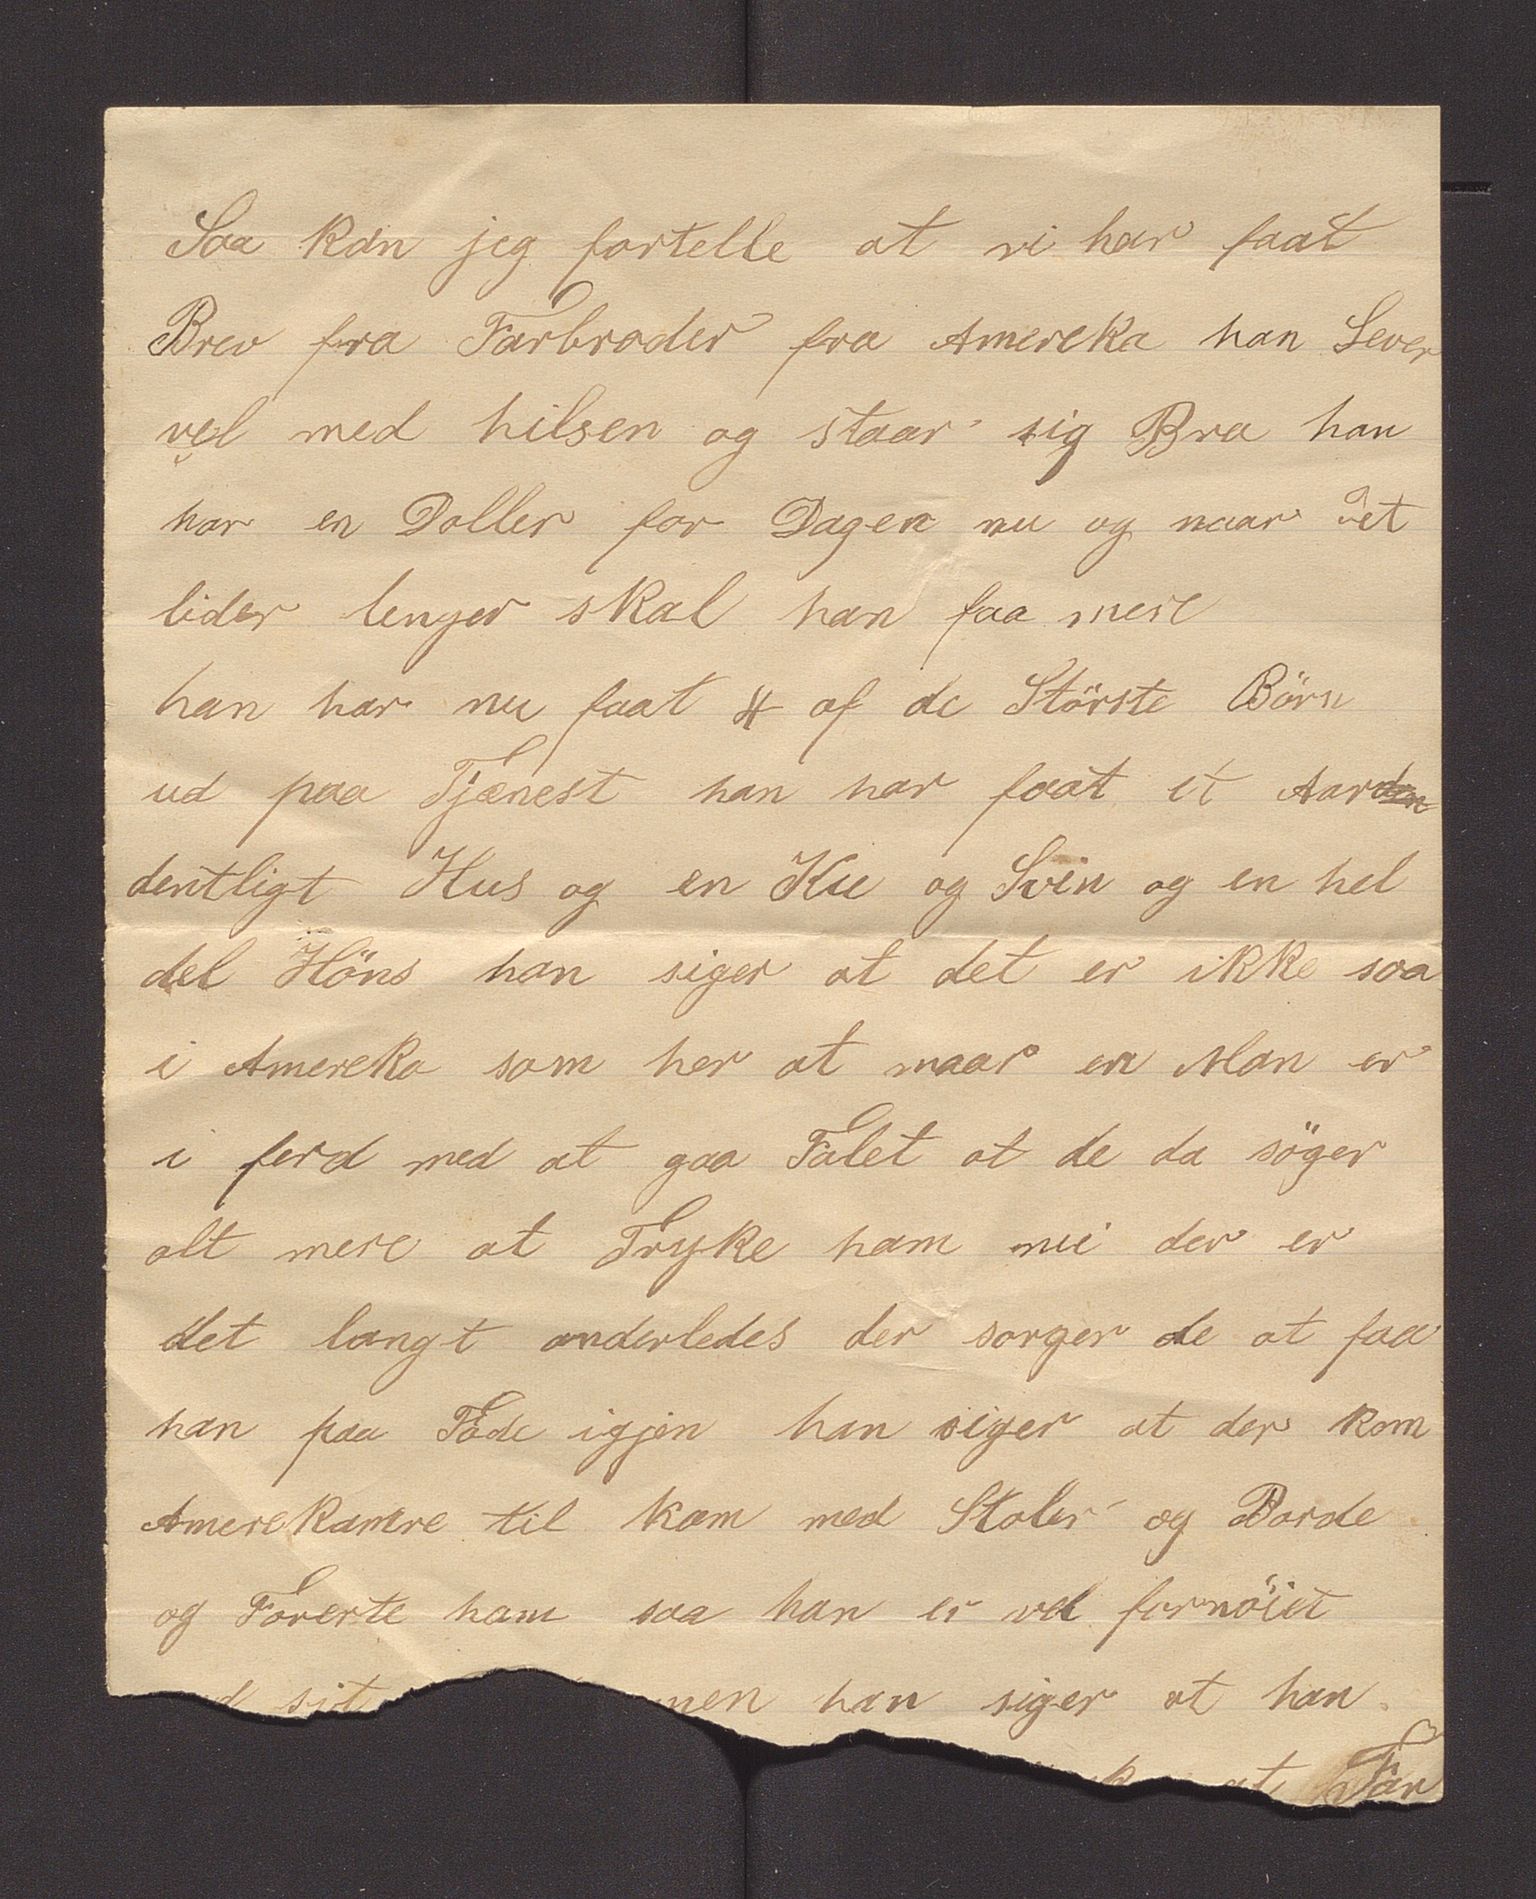 Saa kan jeg fortelle at vi har faat
Brev fra Farbroder fra Amereka han Lever
vel med hilsen og staar sig Bra han
har en Doller for Dagen nu og naar det
lider lenger skal han faa mere
han har nu faat 4 af de Störste Börn
ud paa Tjænest han har faat et Aar
dentligt Hus og en Ku og Svin og en hel
del Höns han siger at det er ikke saa
i Amereka som her at naar en Man er
i ferd med at gaa Falet at de da söger
alt mere at Tryke ham nei der er
det langt anderledes der sorger de at faa
han paa Föde igjen han siger at der kom
Amerekanere til ham med Stoler og Borde
og Forerte ham saa han er vel fornöiet
sit men han siger at han
at Far